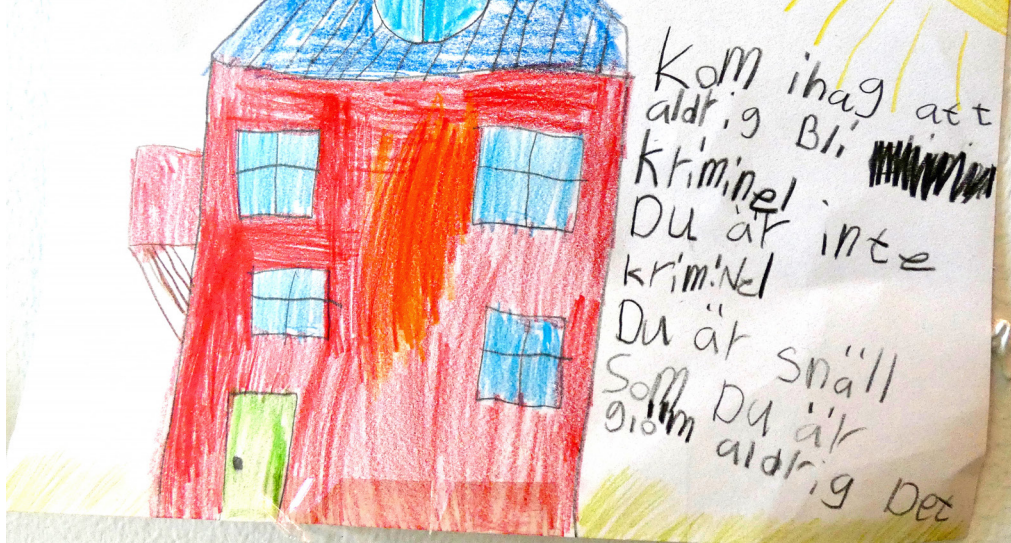 Kom ihag att
aldrig Bli
kriminel
Du är inte
kriminel
Du är snäll
Som Du är
glöm aldrig Det